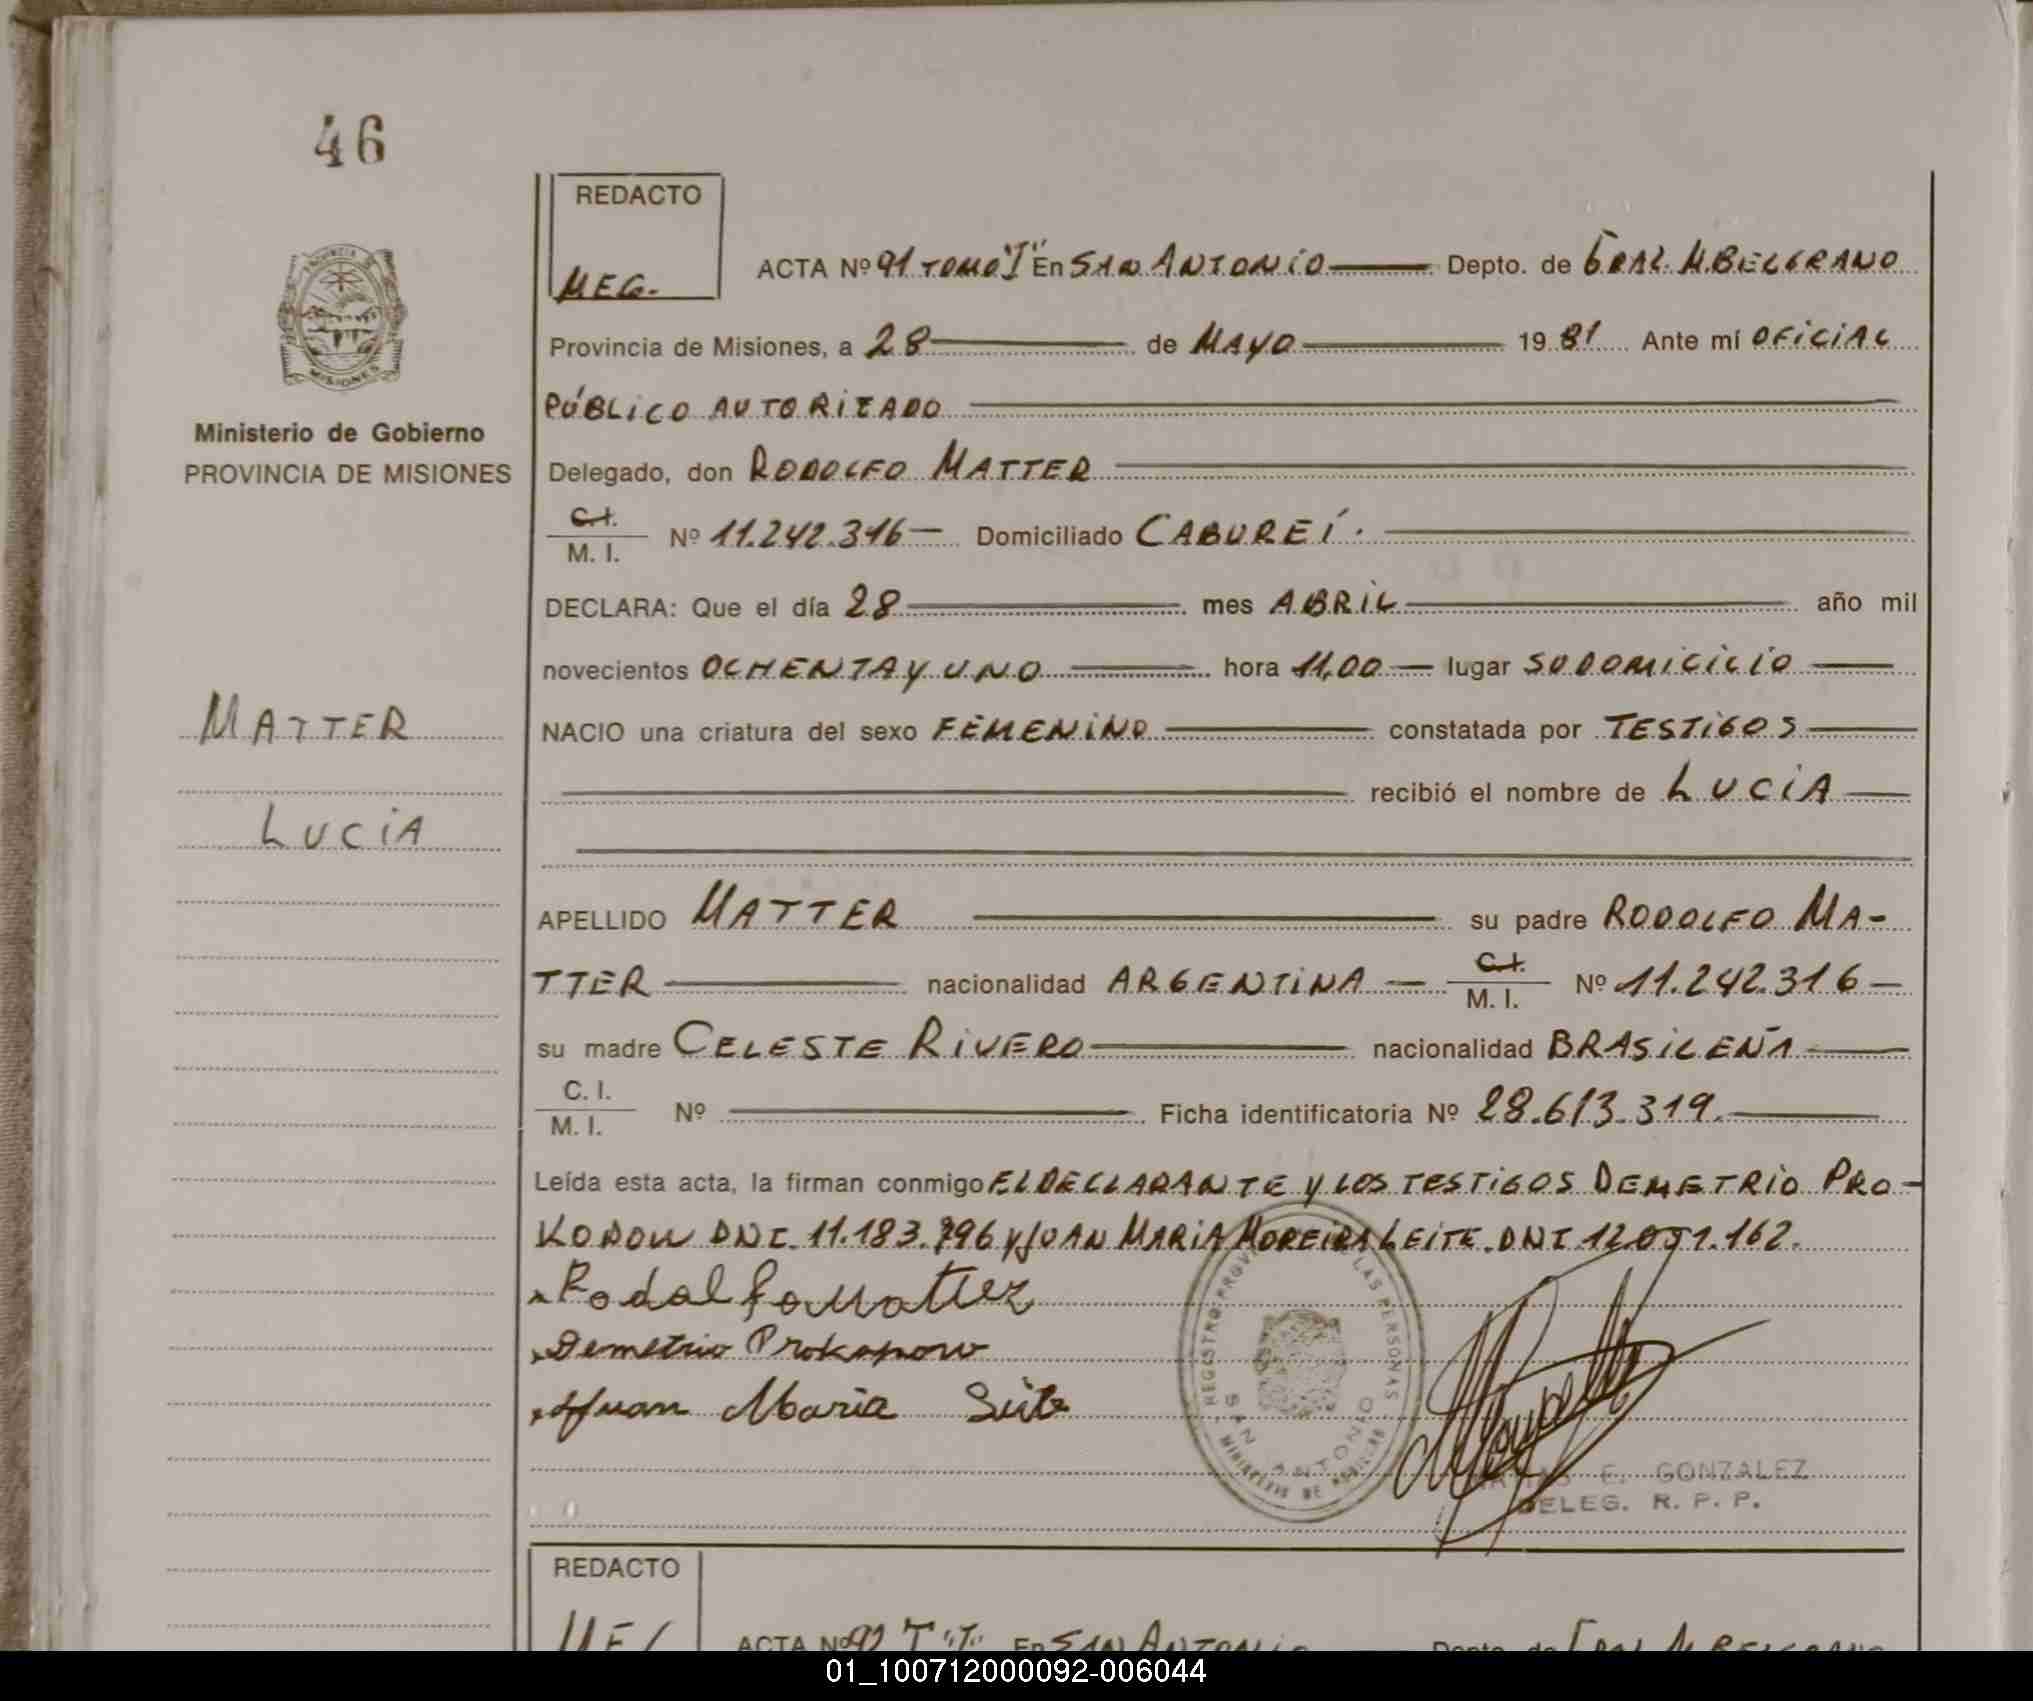 46
REDACTO
MEG.
ACTA Nº 91 TOMO "I" En SAN ANTONIO Depto. de GRAL. M. BELGRANO
Provincia de Misiones, a 28 de MAYO 1981 Ante mí OFICIAL
PÚBLICO AUTORIZADO
Ministerio de Gobierno
PROVINCIA DE MISIONES
MISIONES
Delegado, don RODOLFO MATTER
C.I. / M. I. Nº 11.242.316 Domiciliado CABUREÍ.
DECLARA: Que el día 28 mes ABRIL año mil
novecientos OCHENTA Y UNO hora 11,00 lugar SU DOMICILIO
MATTER
NACIO una criatura del sexo FEMENINO constatada por TESTIGOS
recibió el nombre de LUCIA
LUCIA
APELLIDO MATTER su padre RODOLFO MA-
TTER nacionalidad ARGENTINA C.I. / M. I. Nº 11.242.316
su madre CELESTE RIVERO nacionalidad BRASILEÑA
C. I. / M. I. Nº Ficha identificatoria Nº 28.613.319.
Leída esta acta, la firman conmigo EL DECLARANTE Y LOS TESTIGOS DEMETRIO PRO-
DNI. 11.183.796 Y JUAN MARIA MOREIRA LEITE. DNI 12.051.162.
Demetrio Prokopow
Juan Maria Leite
REGISTRO PROV LAS PERSONAS
SAN ANTONIO
MINISTERIO DE
E. GONZALEZ
DELEG. R. P. P.
REDACTO
ACTA Nº 92 T "I" En SAN ANTONIO Depto. de GRAL M. BELGRANO
01_100712000092-006044